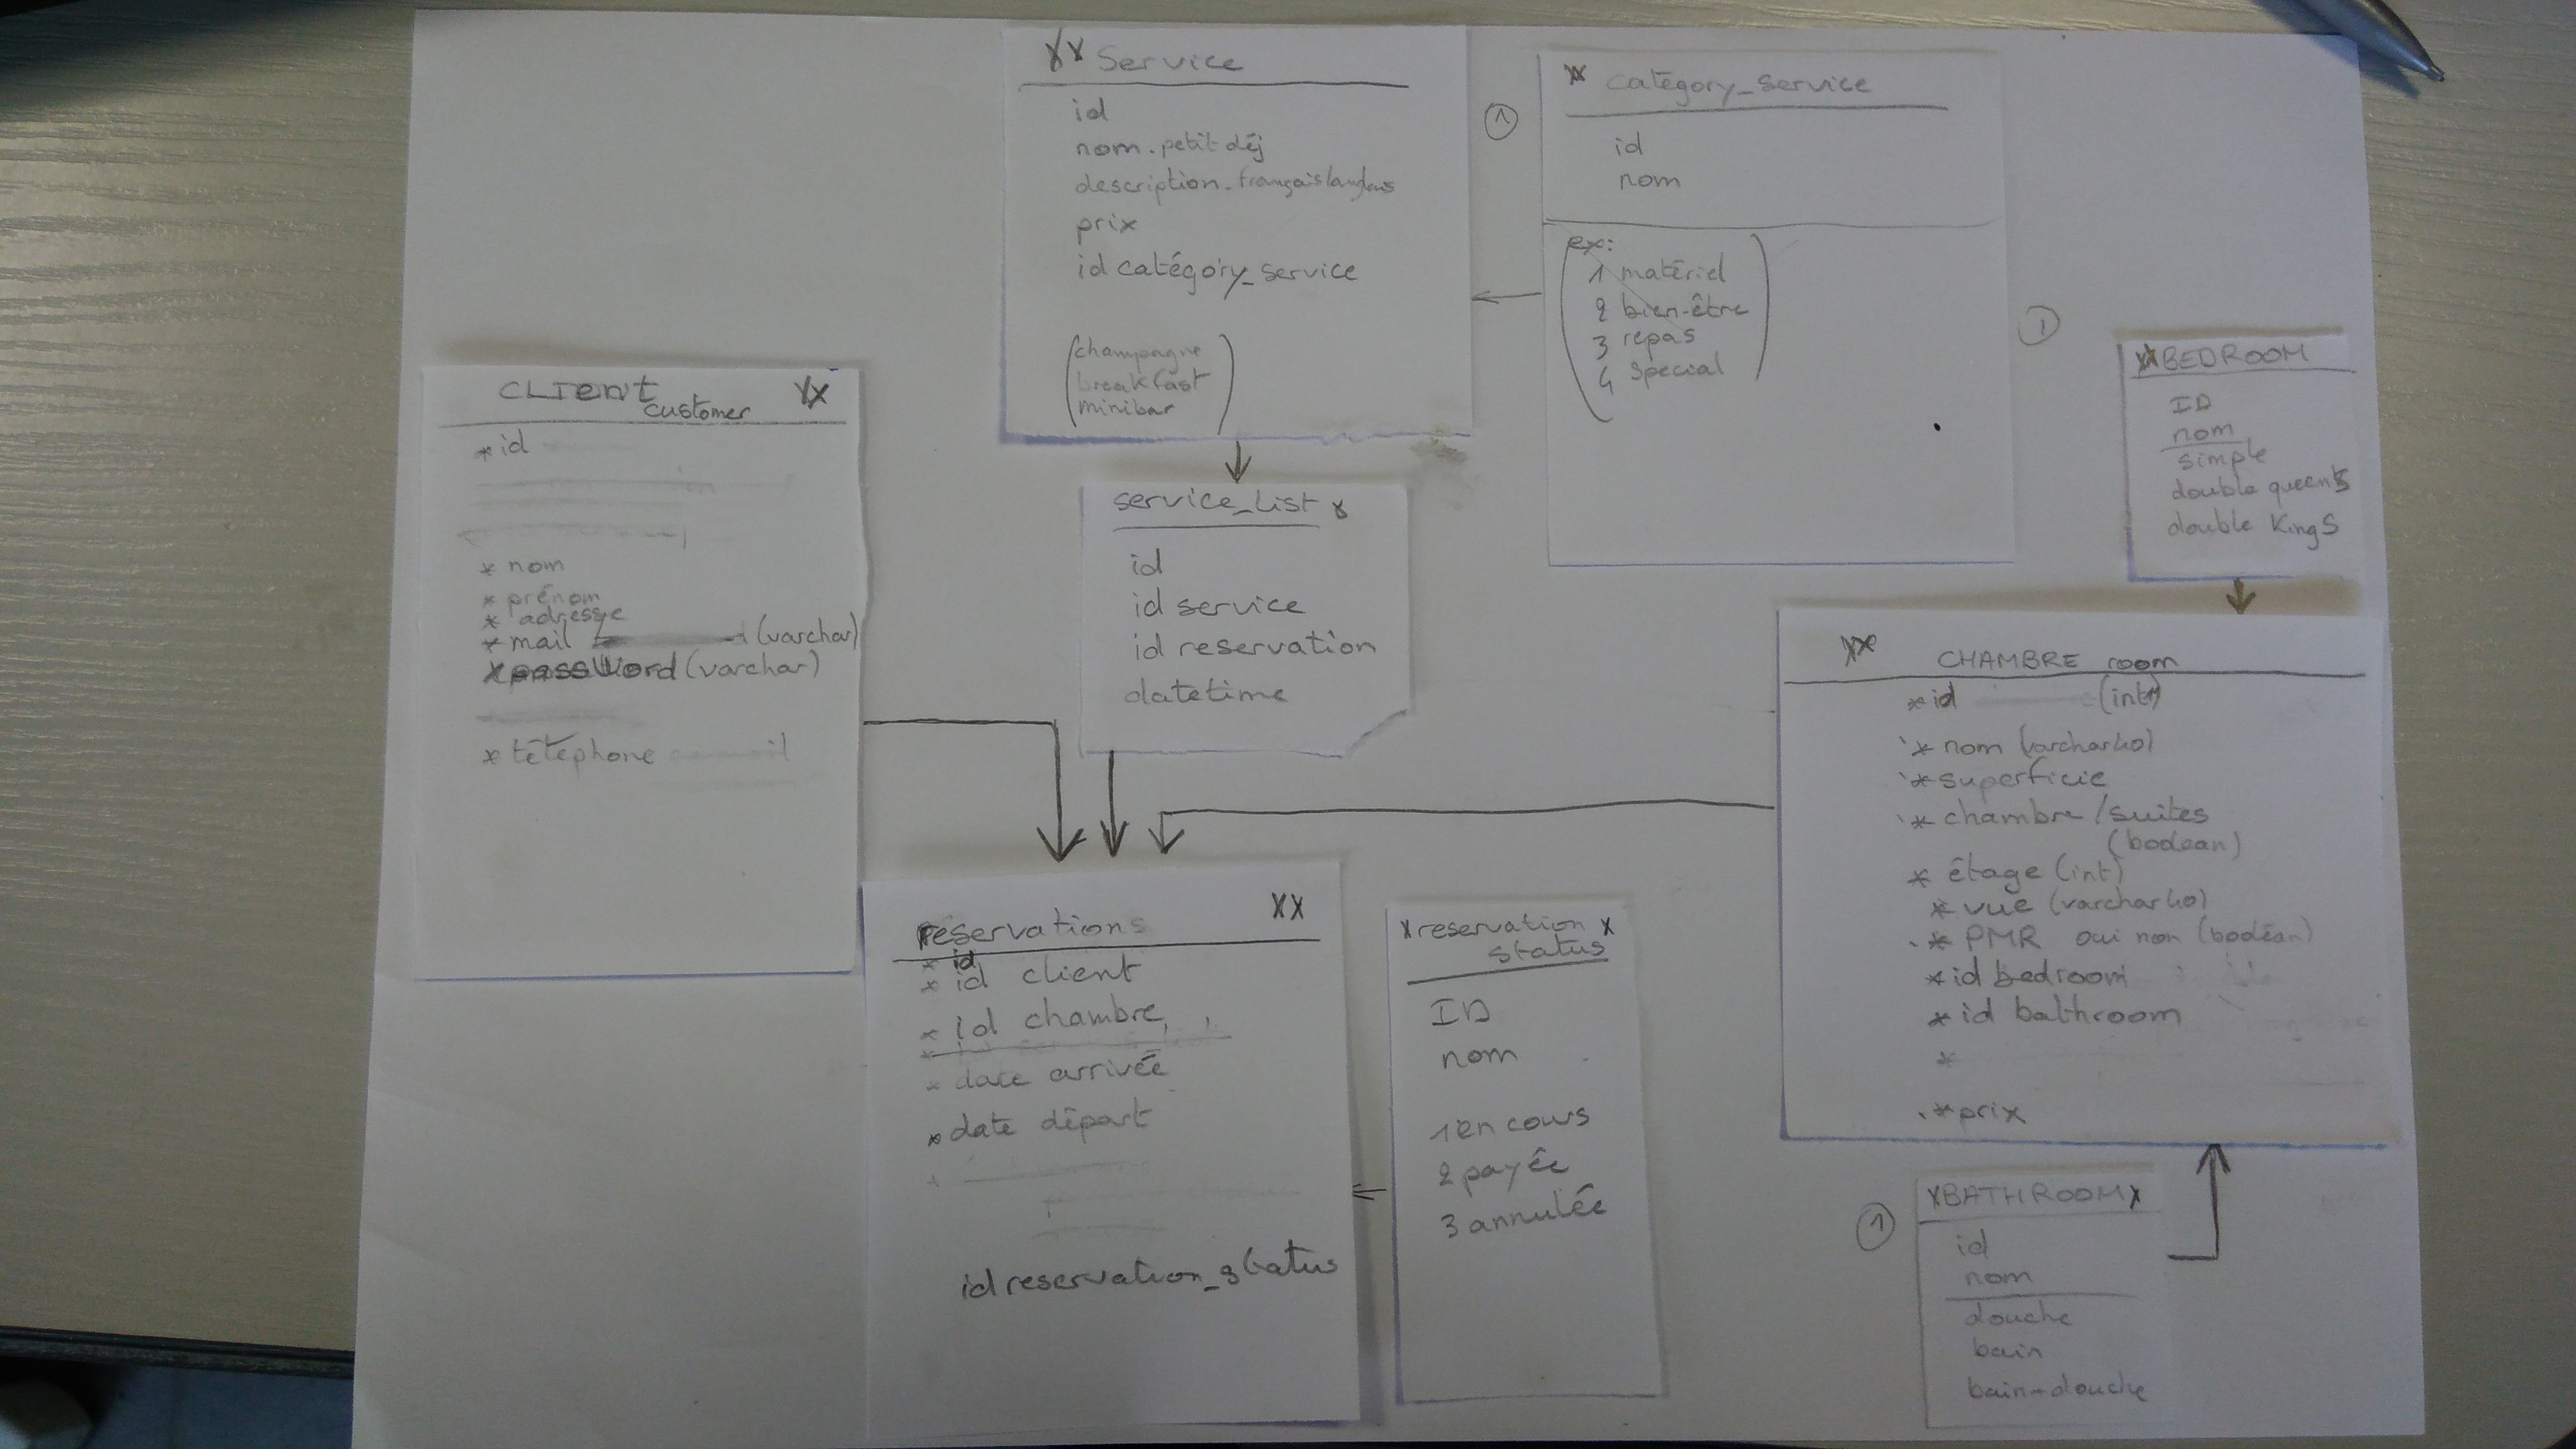 Service
id
nom - petit déj
description - français/anglais
prix
id catégory_service
(champagne
breakfast
minibar)
①
catégory_service
id
nom
ex:
1 matériel
2 bien-être
3 repas
4 spécial
①
BEDROOM
ID
nom
simple
double queenS
double KingS
CLIENT
customer
* id
* nom
* prénom
* adresse
* mail (varchar)
* password (varchar)
* téléphone
service_List
id
id service
id reservation
datetime
CHAMBRE room
* id (int)
* nom (varchar 40)
* superficie
* chambre/suites
(boolean)
* étage (int)
* vue (varchar 40)
* PMR oui non (boolean)
* id bedroom
* id bathroom
*
* prix
reservations
* id
* id client
* id chambre
* date arrivée
* date départ
id reservation_status
reservation
status
ID
nom
1 en cours
2 payée
3 annulée
①
BATHROOM
id
nom
douche
bain
bain+douche